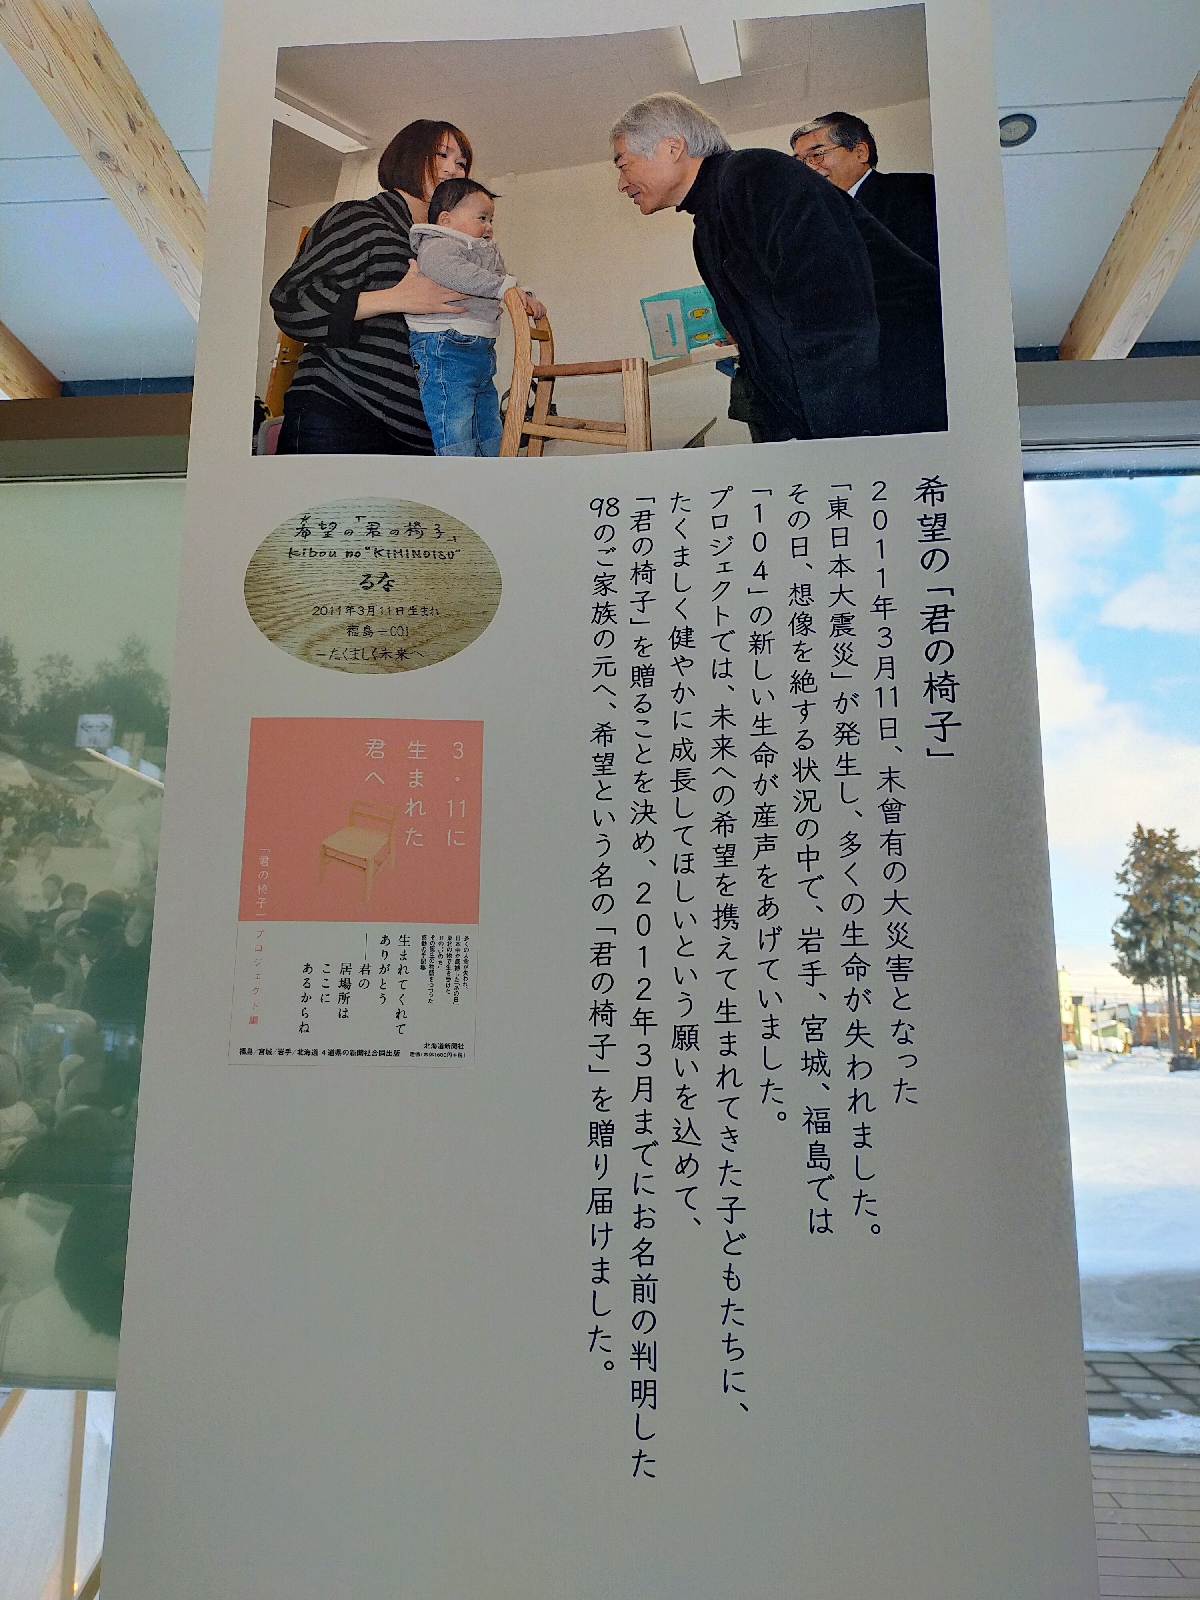 希望の「君の椅子」
2011年3月11日、未曾有の大災害となった
「東日本大震災」が発生し、多くの生命が失われました。
その日、想像を絶する状況の中で、岩手、宮城、福島では
「104」の新しい生命が産声をあげていました。
プロジェクトでは、未来への希望を携えて生まれてきた子どもたちに、
たくましく健やかに成長してほしいという願いを込めて、
「君の椅子」を贈ることを決め、2012年3月までにお名前の判明した
98のご家族の元へ、希望という名の「君の椅子」を贈り届けました。
希望の「君の椅子」
kibou no "KIMINOISU"
るな
2011年3月11日生まれ
福島-001
—たくましく未来へ
3・11に
生まれた
君へ
「君の椅子」プロジェクト編
生まれてくれて
ありがとう
—君の
居場所は
ここに
あるからね
北海道新聞社
福島/宮城/岩手/北海道 4道県の新聞社合同出版